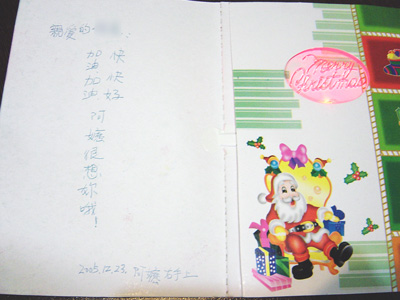 親愛的
加油加油
快快好
阿嬤很想妳哦!
2005.12.23. 阿嬤
Merry Christmas